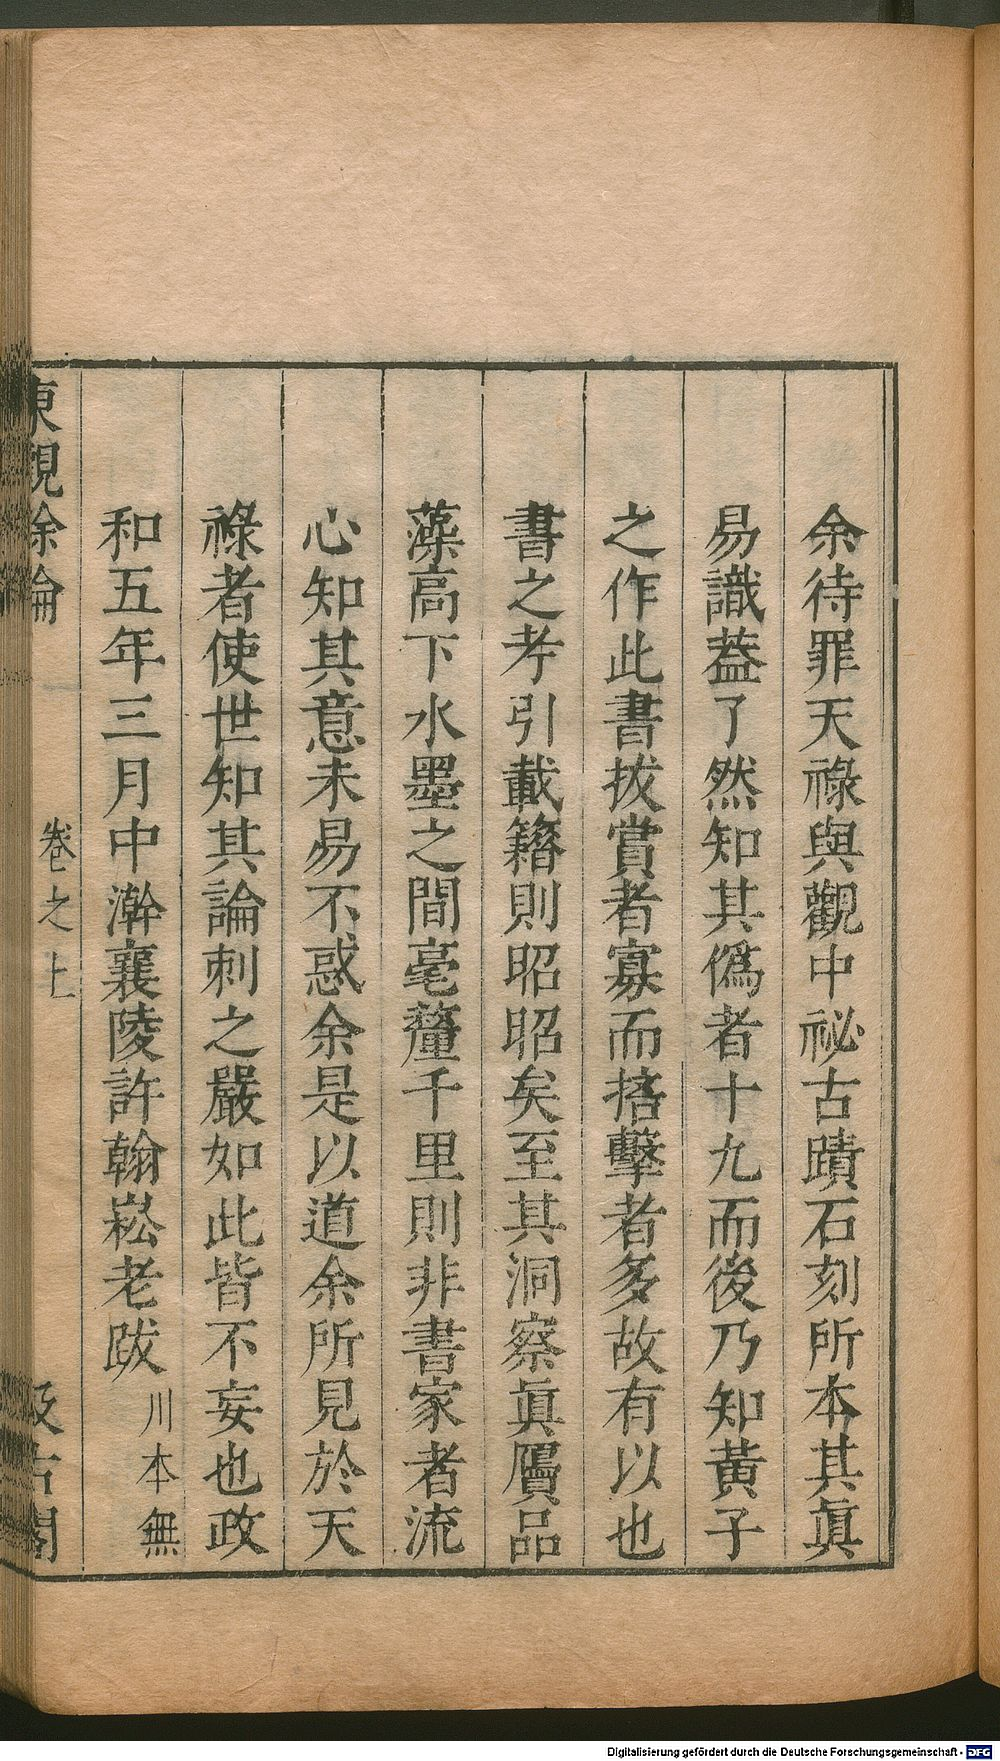 余待罪天祿與觀中祕古蹟石刻所本其眞
易識葢了然知其僞者十九而後乃知黃子
之作此書拔賞者寡而掊擊者多故有以也
書之考引載籍則昭昭矣至其洞察眞贗品
藻高下水墨之間毫釐千里則非書家者流
心知其意未易不惑余是以道余所見於天
祿者使世知其論刺之嚴如此皆不妄也政
和五年三月中澣襄陵許翰崧老跋 川本無
東觀餘論 卷之上 汲古閣
Digitalisierung gefördert durch die Deutsche Forschungsgemeinschaft - DFG